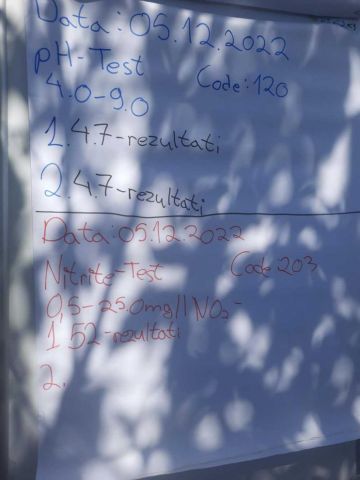 Data: 05.12.2022
pH-Test
Code: 120
4.0-9.0
1. 4.7-rezultati
2. 4.7-rezultati
Data: 05.12.2022
Nitrite-Test
Code 203
0,5-25.0mg/l NO2-
1 52-rezultati
2.